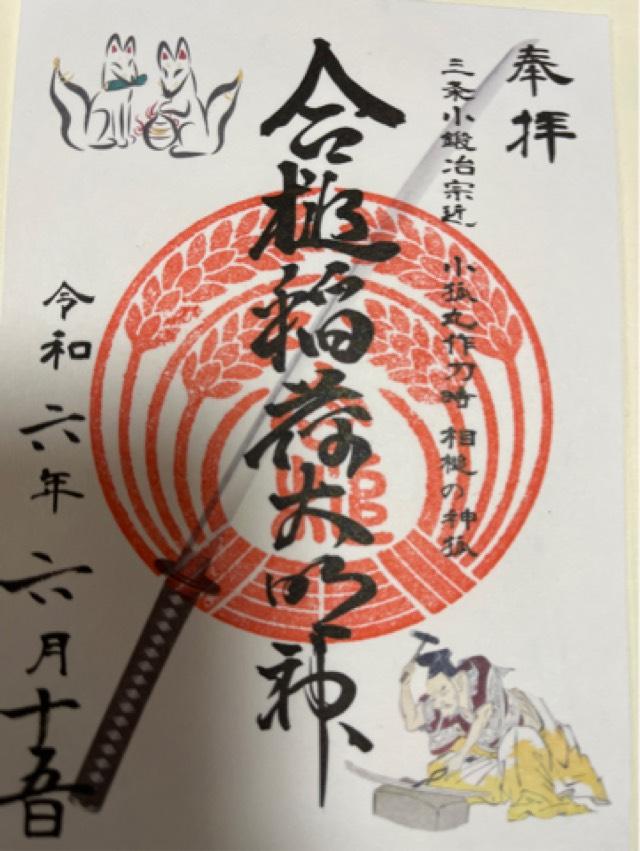 奉拝
三条小鍛冶宗近 小狐丸作刀時 相槌の神狐
合槌稲荷大明神
令和六年六月十五日